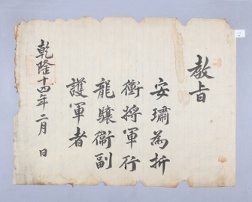 教旨
安璛為折
衝將軍行
龍驤衛副
護軍者
乾隆十四年二月 日